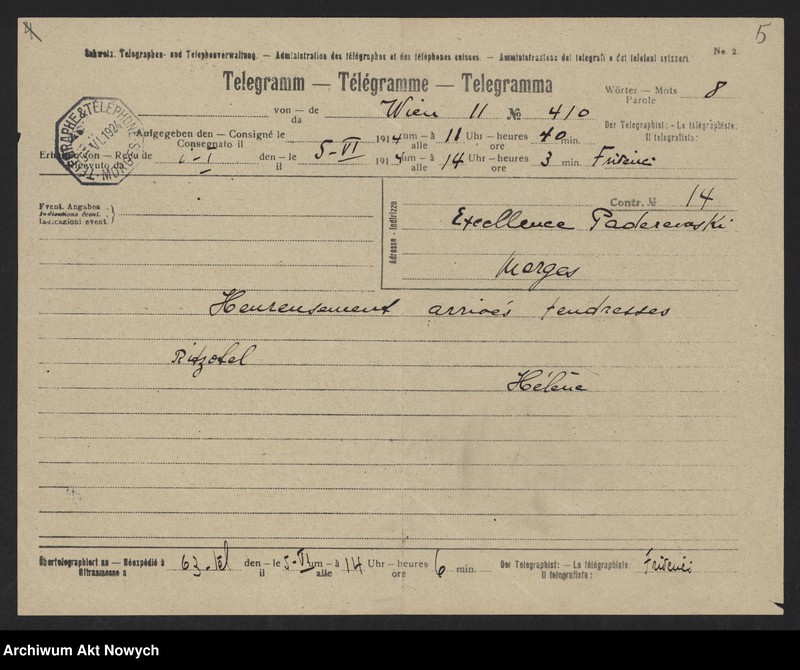 4
5
Schweiz. Telegraphen- und Telephonverwaltung. — Administration des télégraphes et des téléphones suisses. — Amministrazione dei telegrafi e dei telefoni svizzeri.
No. 2
Telegramm — Télégramme — Telegramma
Wörter — Mots 8
Parole
von — de Wien 11 № 410
da
Der Telegraphist: - Le télégraphiste:
Il telegrafista:
TELEGRAPHE & TÉLÉPHONE
VI. 192
MORGES
Aufgegeben den — Consigné le 191 um — à 11 Uhr — heures 40 min.
Consegnato il alle ore
Erhalten von — Reçu de den — le 5-VI 191 um — à 14 Uhr — heures 3 min.
Ricevuto da il alle ore
Event. Angaben
Indications évent.
Indicazioni event.
Adresse - Indirizzo
Contr. № 14
Excellence Paderewski
Morges
Heureusement arrivés tendresses
Ritzotel
Hélène
Übertelegraphiert an — Réexpédié à 63 Tél den — le 5-VI um — à 14 Uhr — heures 6 min.
Ritrasmesso a il alle ore
Der Telegraphist: — Le télégraphiste:
Il telegrafista:
Archiwum Akt Nowych